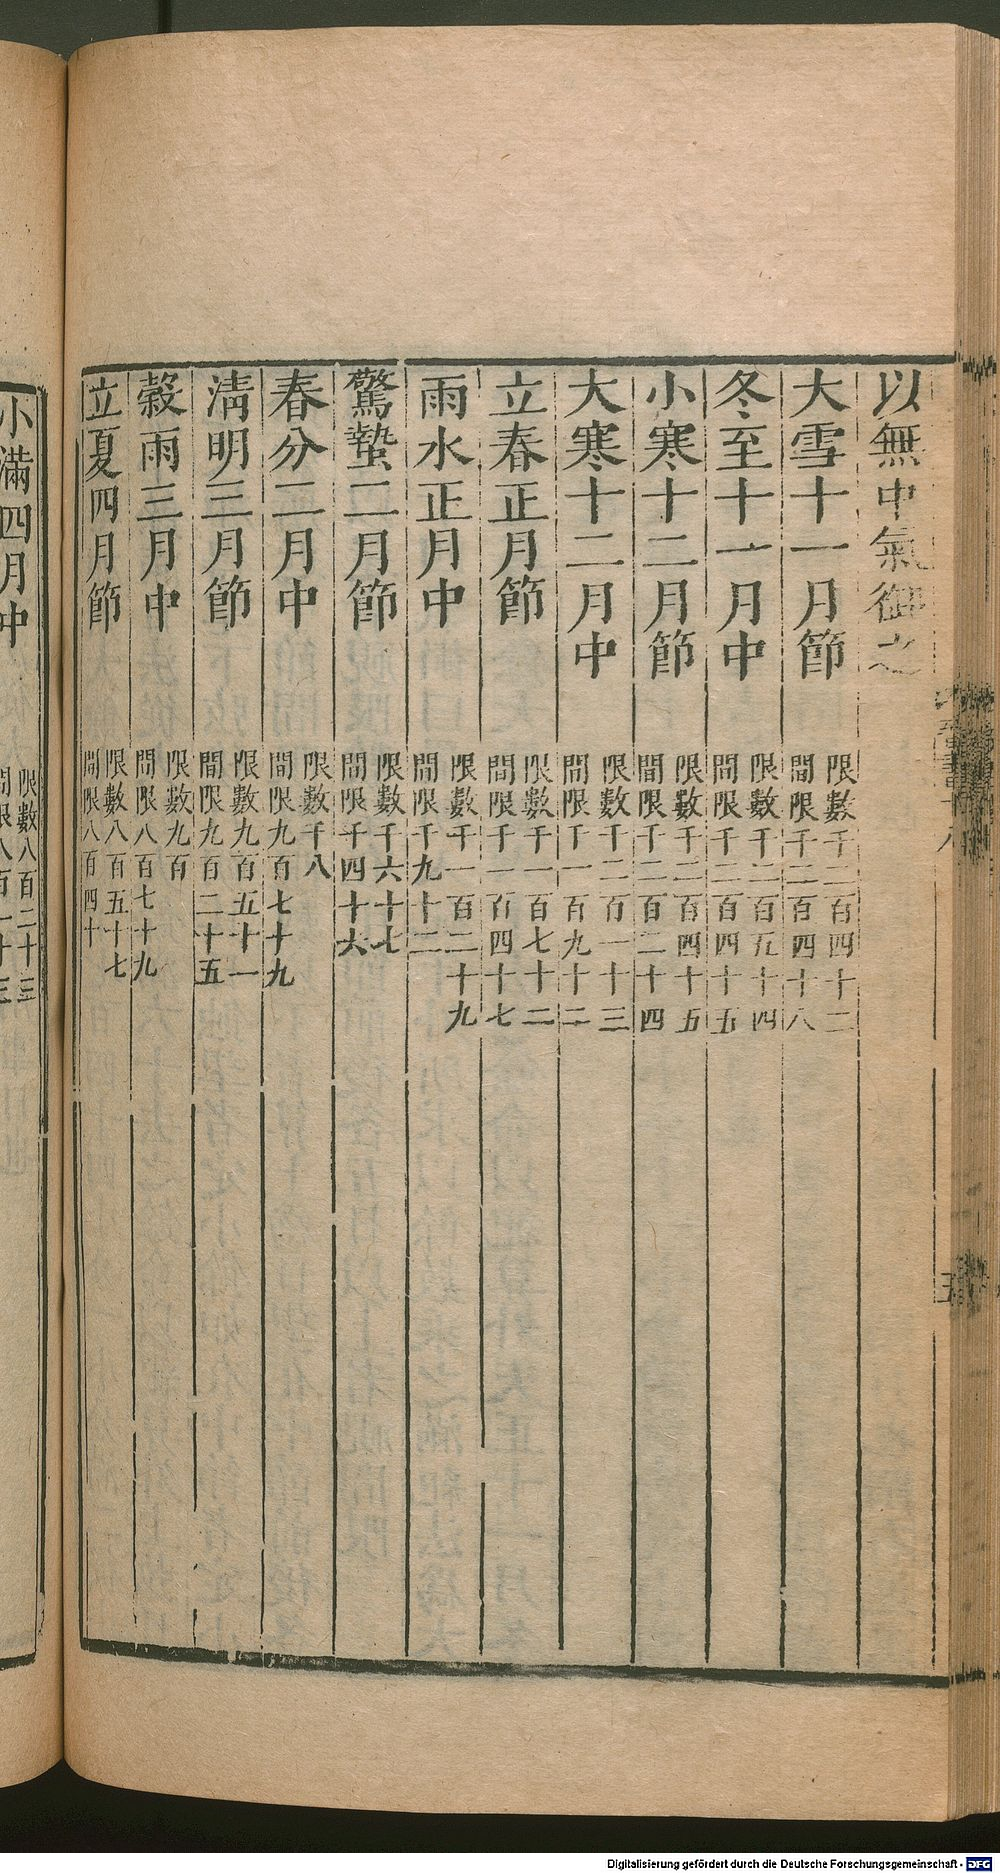 以無中氣御之
大雪十一月節 限數千二百四十二
間限千二百四十八
冬至十一月中 限數千二百五十四
間限千二百四十五
小寒十二月節 限數千二百四十五
間限千二百二十四
大寒十二月中 限數千二百一十三
間限千一百九十二
立春正月節 限數千一百七十二
間限千一百四十七
雨水正月中 限數千一百二十九
間限千九十二
驚蟄二月節 限數千六十七
間限千四十六
春分二月中 限數千八
間限九百七十九
清明三月節 限數九百五十一
間限九百二十五
穀雨三月中 限數九百
間限八百七十九
立夏四月節 限數八百五十七
間限八百四十
小滿四月中 限數八百二十三
間限八百一十三
Digitalisierung gefördert durch die Deutsche Forschungsgemeinschaft - DFG